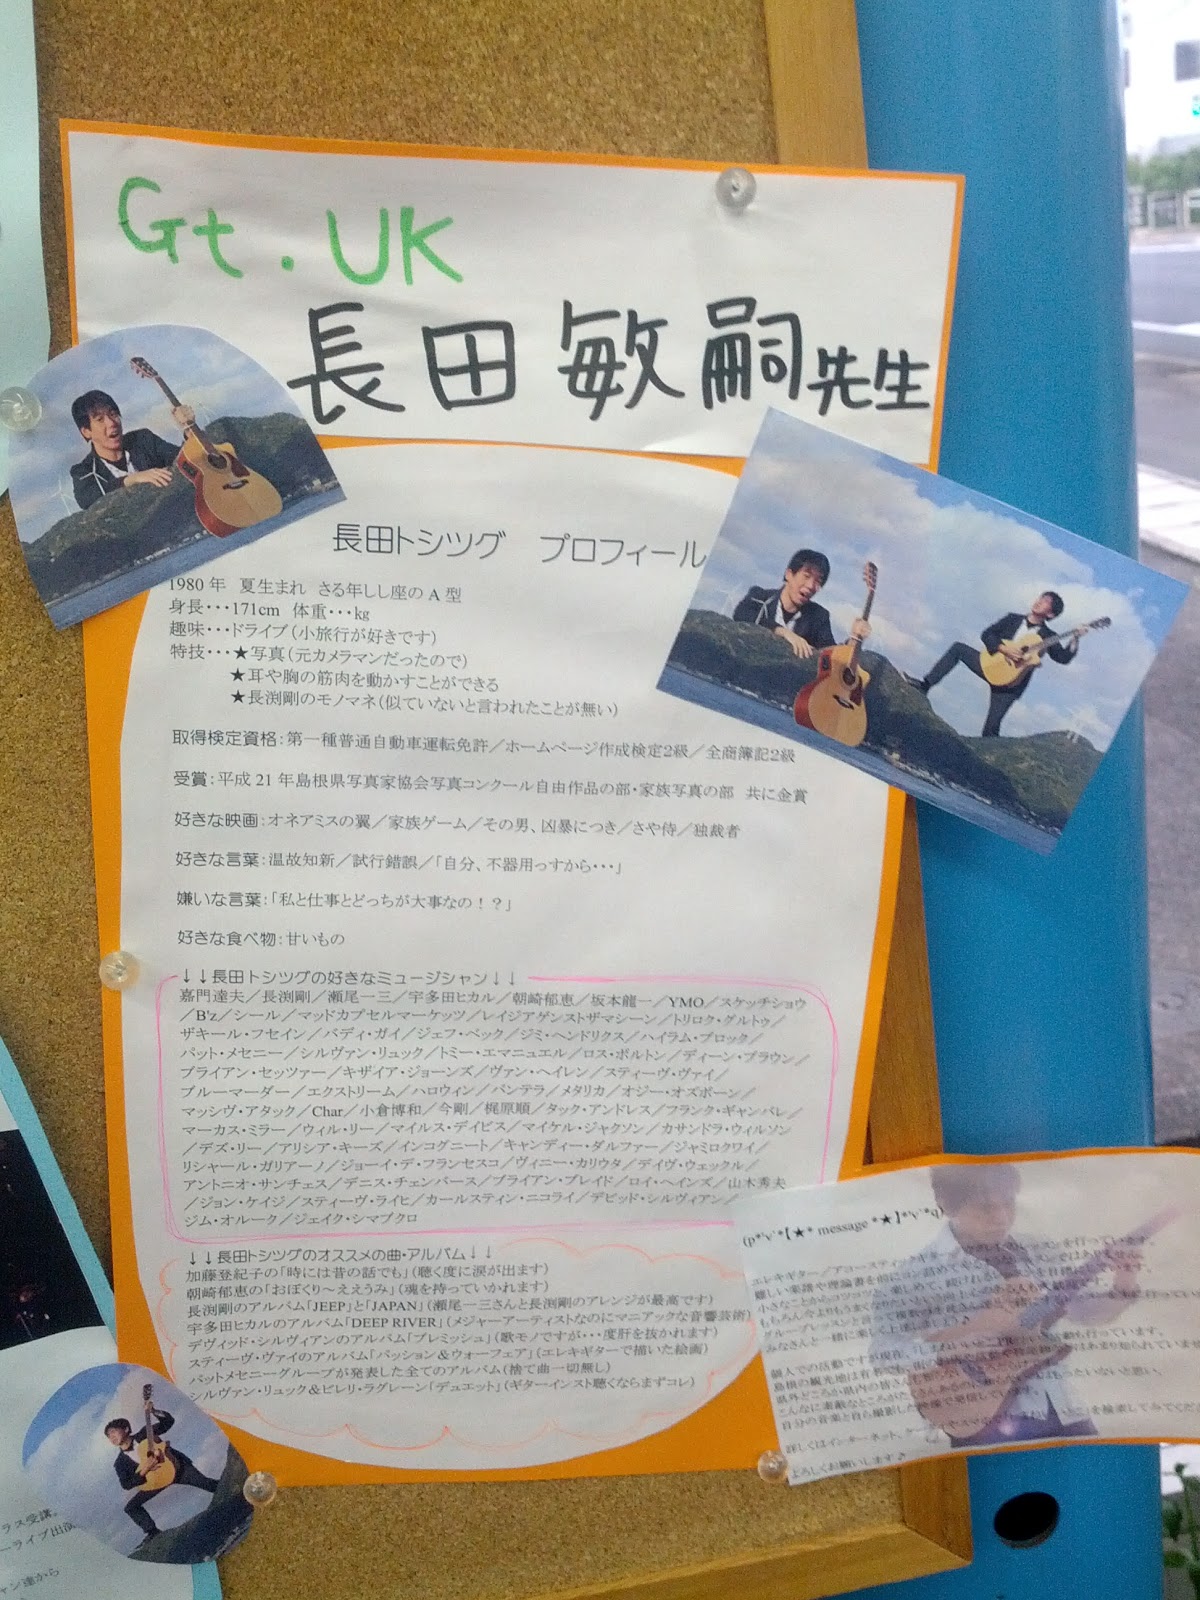 Gt. UK
長田 敏嗣先生
長田トシツグ プロフィール
1980年 夏生まれ さる年しし座のA型
身長・・・171cm 体重・・・kg
趣味・・・ドライブ(小旅行が好きです)
特技・・・★写真(元カメラマンだったので)
★耳や胸の筋肉を動かすことができる
★長渕剛のモノマネ(似ていないと言われたことが無い)
取得検定資格:第一種普通自動車運転免許/ホームページ作成検定2級/全商簿記2級
受賞:平成21年島根県写真家協会写真コンクール自由作品の部・家族写真の部 共に金賞
好きな映画:オネアミスの翼/家族ゲーム/その男、凶暴につき/さや侍/独裁者
好きな言葉:温故知新/試行錯誤/「自分、不器用っすから・・・」
嫌いな言葉:「私と仕事とどっちが大事なの!?」
好きな食べ物:甘いもの
↓↓長田トシツグの好きなミュージシャン↓↓
嘉門達夫/長渕剛/瀬尾一三/宇多田ヒカル/朝崎郁恵/坂本龍一/YMO/スケッチショウ
/B'z/シール/マッドカプセルマーケッツ/レイジアゲンストザマシーン/トリロク・グルトゥ/
ザキール・フセイン/バディ・ガイ/ジェフ・ベック/ジミ・ヘンドリクス/ハイラム・ブロック/
パット・メセニー/シルヴァン・リュック/トミー・エマニュエル/ロス・ボルトン/ディーン・ブラウン/
ブライアン・セッツァー/キザイア・ジョーンズ/ヴァン・ヘイレン/スティーヴ・ヴァイ/
ブルーマーダー/エクストリーム/ハロウィン/パンテラ/メタリカ/オジー・オズボーン/
マッシヴ・アタック/Char/小倉博和/今剛/梶原順/タック・アンドレス/フランク・ギャンバレ/
マーカス・ミラー/ウィル・リー/マイルス・デイビス/マイケル・ジャクソン/カサンドラ・ウィルソン
/デズ・リー/アリシア・キーズ/インコグニート/キャンディー・ダルファー/ジャミロクワイ/
リシャール・ガリアーノ/ジョーイ・デ・フランセスコ/ヴィニー・カリウタ/デイヴ・ウェックル/
アントニオ・サンチェス/デニス・チェンバース/ブライアン・ブレイド/ロイ・ヘインズ/山木秀夫
/ジョン・ケイジ/スティーヴ・ライヒ/カールスティン・ニコライ/デビッド・シルヴィアン/
ジム・オルーク/ジェイク・シマブクロ
↓↓長田トシツグのオススメの曲・アルバム↓↓
加藤登紀子の「時には昔の話でも」(聴く度に涙が出ます)
朝崎郁恵の「おぼくり〜ええうみ」(魂を持っていかれます)
長渕剛のアルバム「JEEP」と「JAPAN」(瀬尾一三さんと長渕剛のアレンジが最高です)
宇多田ヒカルのアルバム「DEEP RIVER」(メジャーアーティストなのにマニアックな音響芸術)
デヴィッド・シルヴィアンのアルバム「ブレミッシュ」(歌モノですが・・・度肝を抜かれます)
スティーヴ・ヴァイのアルバム「パッション&ウォーフェア」(エレキギターで描いた絵画)
パットメセニーグループが発表した全てのアルバム(捨て曲一切無し)
シルヴァン・リュック&ビレリ・ラグレーン「デュエット」(ギターインスト聴くならまずコレ)
message
エレキギター/アコースティックギター
みなさんと一緒に楽しく上達しましょう♪
自分の音楽と自ら撮影した映像で発信しています。
詳しくはインターネット、
よろしくお願いします♪
ラス受講。
ーライブ出演
ャン達から